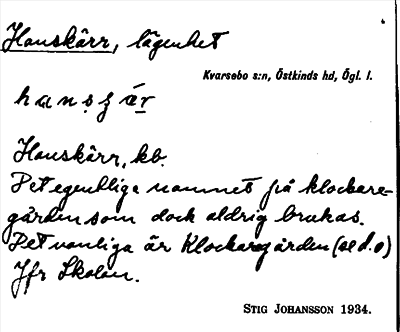 Hanskärr, lägenhet
Kvarsebo s:n, Östkinds hd, Ögl. l.
Hanskärr, kb.
Det egentliga namnet på klockare-
gården som dock aldrig brukas.
Det vanliga är Klockaregården (se d.o)
Jfr Skolan.
STIG JOHANSSON 1934.